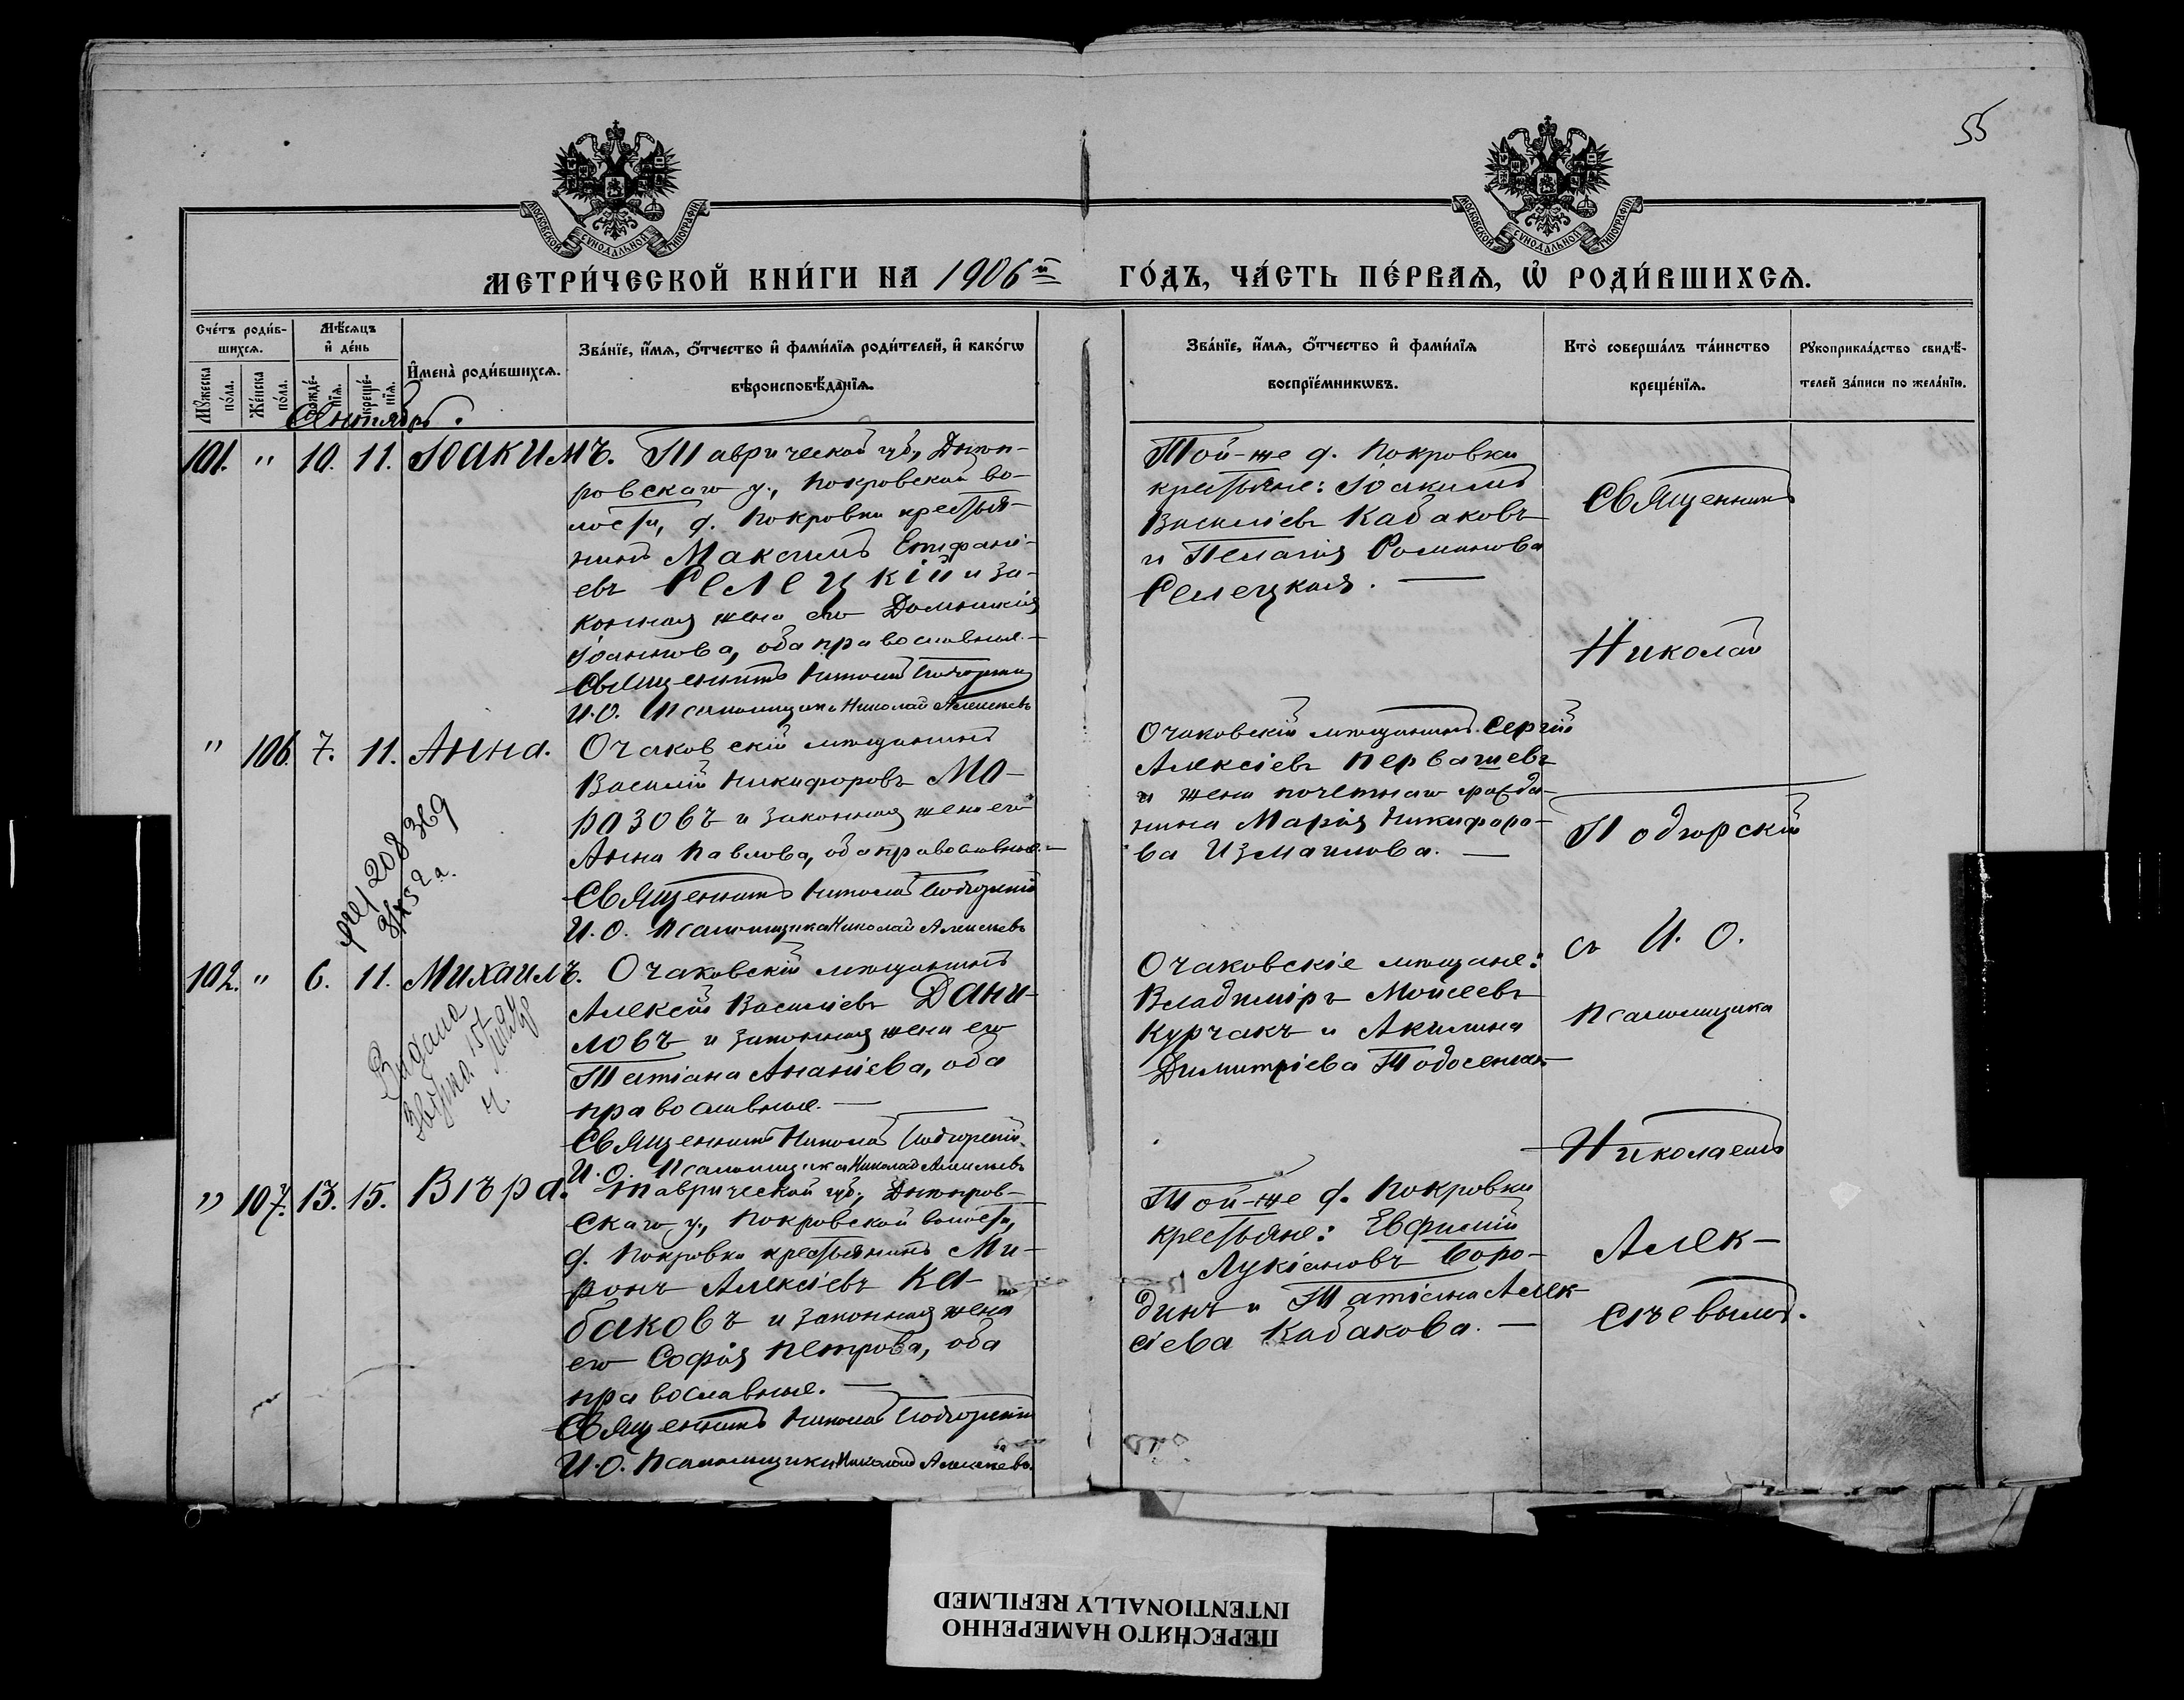 55
МОСКОВСКОЙ СУНОДАЛЬНОЙ ТИПОГРАФІИ
МОСКОВСКОЙ СУНОДАЛЬНОЙ ТИПОГРАФІИ
МЕТРИ́ЧЕСКОЙ КНИ́ГИ НА 1906й ГО́ДЪ, ЧА́СТЬ ПЕ́РВАѦ, Ѽ РОДИ́ВШИХСѦ.
Сче́тъ роди́в-
шихсѧ.
Мꙋ́жеска по́ла.
Же́нска по́ла.
Мѣ́сѧцъ
и҆ де́нь
рожде́-
нїѧ.
креще́-
нїѧ.
И҆мена̀ роди́вшихсѧ.
Зва́нїе, и҆́мѧ, ѻ҆́тчество и҆ фами́лїѧ роди́телей, и҆ како́гѡ
вѣроисповѣ́данїѧ.
Зва́нїе, и҆́мѧ, ѻ҆́тчество и҆ фами́лїѧ
воспрїе́мникѡвъ.
Кто̀ соверша́лъ та́инство
креще́нїѧ.
Рꙋкоприкла́дство свидѣ́-
телей за́писи по жела́нїю.
Сентябрь.
101. " 10. 11. Іоакимъ.
Таврической губ., Днѣп-
ровскаго у., Покровской во-
лости, д. Покровки крестья-
нинъ Максимъ Епифані-
евъ Селецкій и за-
конная жена его Домникія
Іоаннова, оба православные.—
Священникъ Николай Подгорскій
И. О. Псаломщика Николай Алексѣевъ
Той-же д. Покровки
крестьяне: Іоакимъ
Василіевъ Кабаковъ
и Пелагія Романова
Селецкая. —
" 106. 7. 11. Анна.
Очаковскій мѣщанинъ
Василій Никифоровъ Мо-
розовъ и законная жена его
Анна Павлова, оба православные.—
Священникъ Николай Подгорскій
И. О. Псаломщика Николай Алексѣевъ
Очаковскій мѣщанинъ Сергій
Алексіевъ Первашевъ
и жена почетнаго гражда-
нина Марія Никифоро-
ва Измаилова. —
208369
102. " 6. 11. Михаилъ.
Очаковскій мѣщанинъ
Алексій Василіевъ Дани-
ловъ и законная жена его
Татіана Ананіева, оба
православные. —
Священникъ Николай Подгорскій
И. О. Псаломщика Николай Алексѣевъ
Очаковскіе мѣщане:
Владиміръ Моисеевъ
Курчакъ и Акилина
Димитріева
Видана
" 107. 13. 15. Вѣра.
Таврической губ., Днѣпров-
скаго у., Покровской волости,
д. Покровки крестьянинъ Ми-
ронъ Алексіевъ Ка-
баковъ и законная жена
его Софія Петрова, оба
православные. —
Священникъ Николай Подгорскій
И. О. Псаломщика Николай Алексѣевъ.
Той-же д. Покровки
крестьяне: Евфимій
Лукіановъ Боро-
динъ и Татіана Алек-
сіева Кабакова. —
Священникъ
Николай
Подгорскій
съ И. О.
Псаломщика
Николаемъ
Алек-
сѣевымъ.
ПЕРЕСНЯТО НАМЕРЕННО
INTENTIONALLY REFILMED